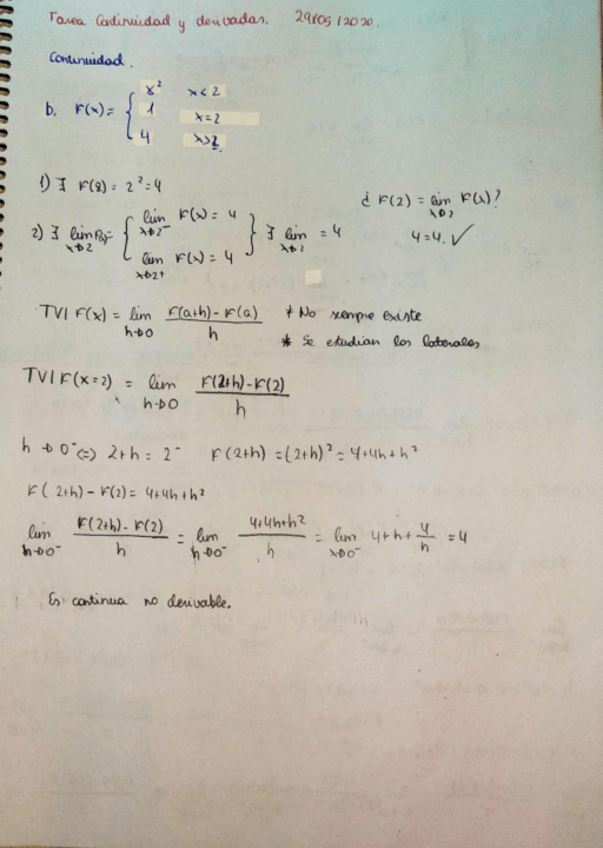 Tarea Continuidad y derivadas. 29/05/2020.
Continuidad.
b. F(x) = { x² x<2
1 x=2
4 x>2.
1) ∃ F(2) = 2² = 4
¿ F(2) = lim x→2 F(x)?
2) ∃ lim x→2 = { lim x→2⁻ F(x) = 4
lim x→2+ F(x) = 4 } ∃ lim x→2 = 4
4=4. ✓
TVI F(x) = lim h→0 F(a+h) - F(a) / h * No siempre existe
* Se estudian los laterales
TVI F(x=2) = lim h→0 F(2+h)-F(2) / h
h→0⁻ <=> 2+h = 2⁻ F(2+h) = (2+h)² = 4+4h+h²
F(2+h) - F(2) = 4+4h+h²
lim h→0⁻ F(2+h) - F(2) / h = lim h→0⁻ 4+4h+h² / h = lim x→0⁻ 4+h+ 4/h = 4
Es continua no derivable.